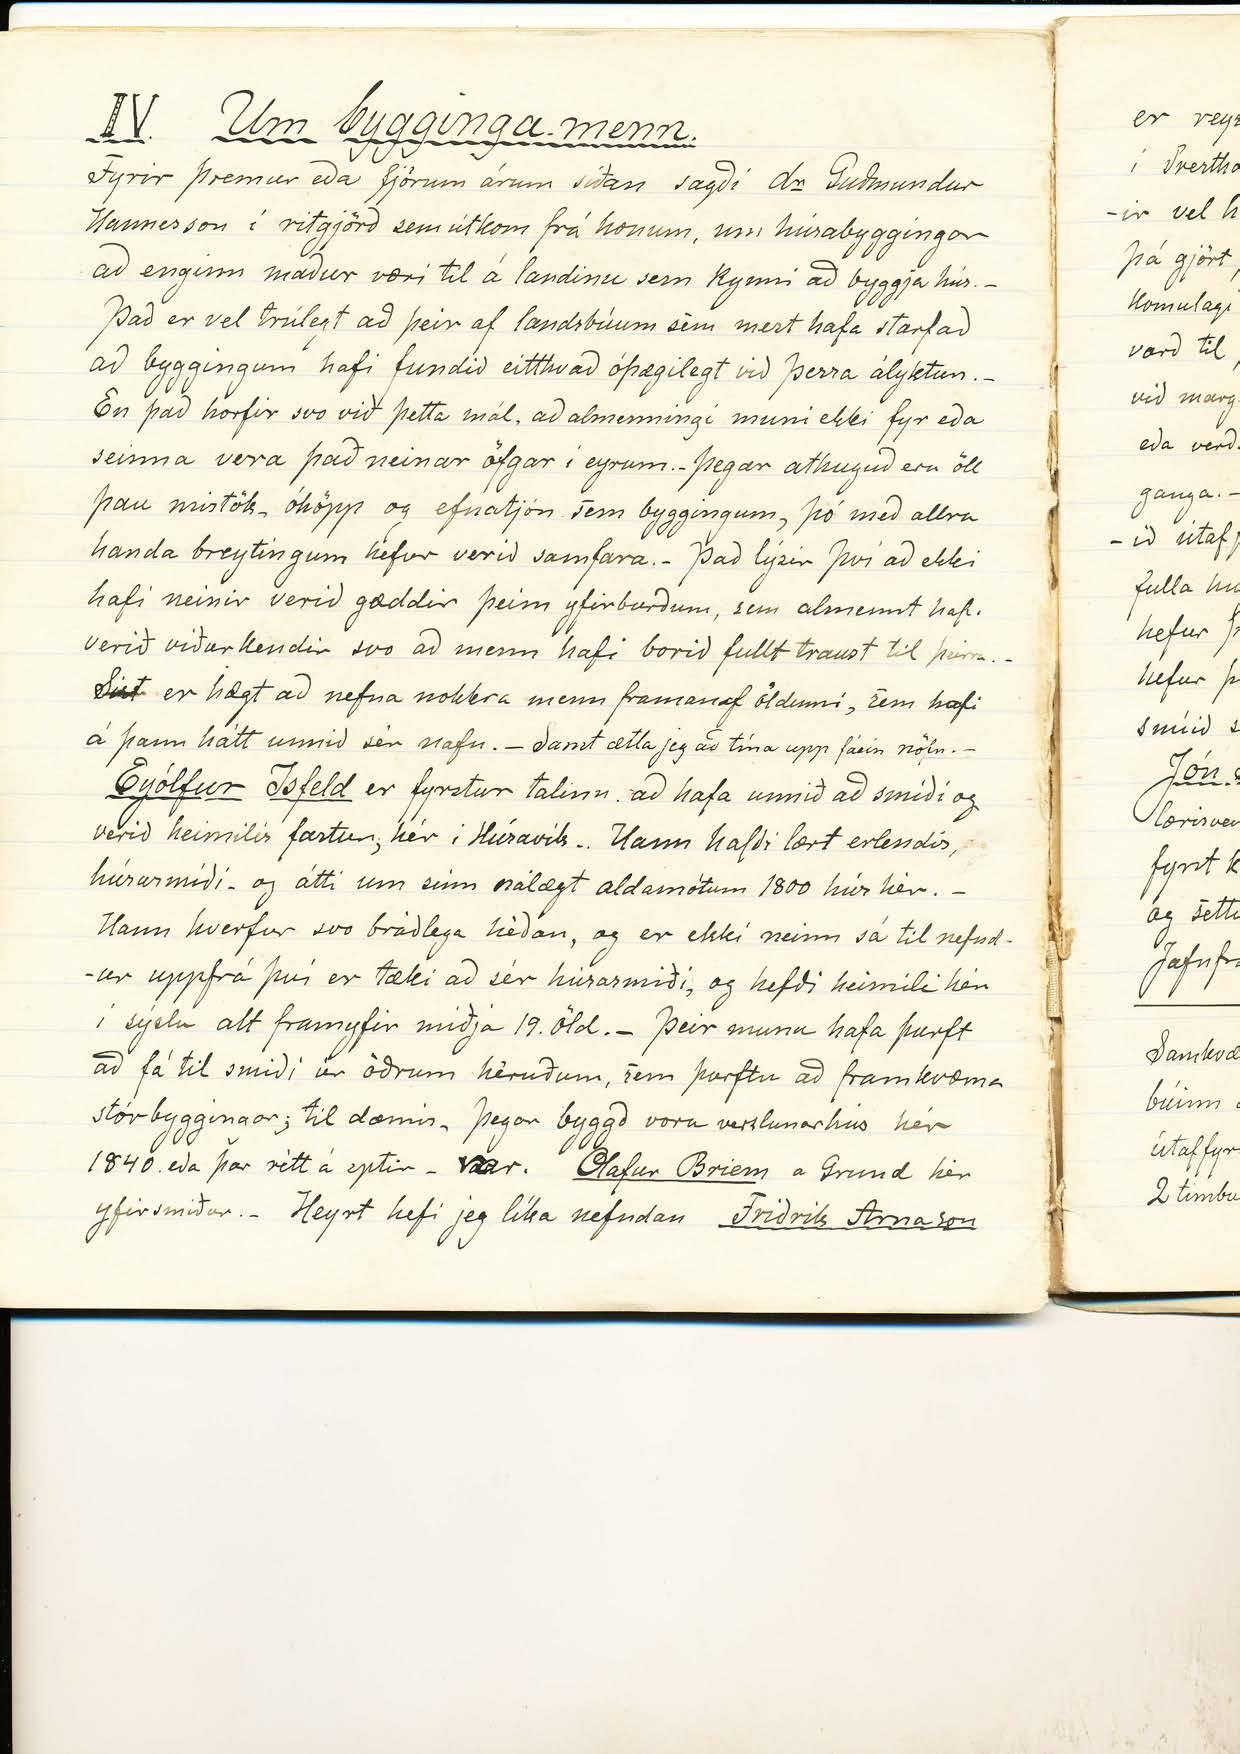 IV. Um bygginga-menn.
Fyrir þremur eða fjórum árum síðan sagði dr Guðmundur
Hannesson í ritgjörð sem útkom frá honum, um húsabyggingar
að enginn maður væri til á landinu sem kynni að byggja hús. -
Það er vel trúlegt að þeir af landsbúum sem mest hafa starfað
að byggingum hafi fundið eitthvað óþægilegt við þessa ályktun. -
En það horfir svo við þetta mál, að almenningi muni ekki fyr eða
seinna vera það neinar öfgar í eyrum. - Þegar athuguð eru öll
þau mistök, óhöpp og efnatjón sem byggingum, þó með allra
handa breytingum hefur verið samfara. - Það lýsir því að ekki
hafi neinir verið gæddir þeim yfirburðum, sem almennt hafi
verið viðurkendir svo að menn hafi borið fullt traust til þeirra. -
er hægt að nefna nokkra menn framanaf öldinni, sem hafi
á þann hátt unnið sér nafn. - Samt ætla jeg að tína upp fáein nöfn. -
Eyólfur Isfeld er fyrstur talinn að hafa unnið að smíði og
verið heimilis fastur, hér í Húsavík. Hann hafði lært erlendis,
húsasmíði - og átti um sinn nálægt aldamótum 1800 hús hér. -
Hann hverfur svo bráðlega héðan, og er ekki neinn sá til nefnd-
-ur uppfrá því er tæki að sér húsasmíði, og hefði heimili hér
í sýslu alt framyfir miðja 19. öld. - Þeir munu hafa þurft
að fá til smiði úr öðrum héruðum, sem þurftu að framkvæma
stórbyggingar; til dæmis, þegar byggð voru verslunarhús hér
1840. eða þar rétt á eptir - var. Olafur Briem a Grund hér
yfirsmiður. - Heyrt hefi jeg líka nefndan Friðrik Arnason
er
í
-ir vel h
þá gjört,
komulagi
varð til,
við marg
eða verð
ganga. -
-ið útaf þ
fulla
hefur
hefur þ
smíið s
Jón
lærisvei
fyrst k
og settu
Jafnfra
Samkvæ
búinn
útaffyr
2 timbu